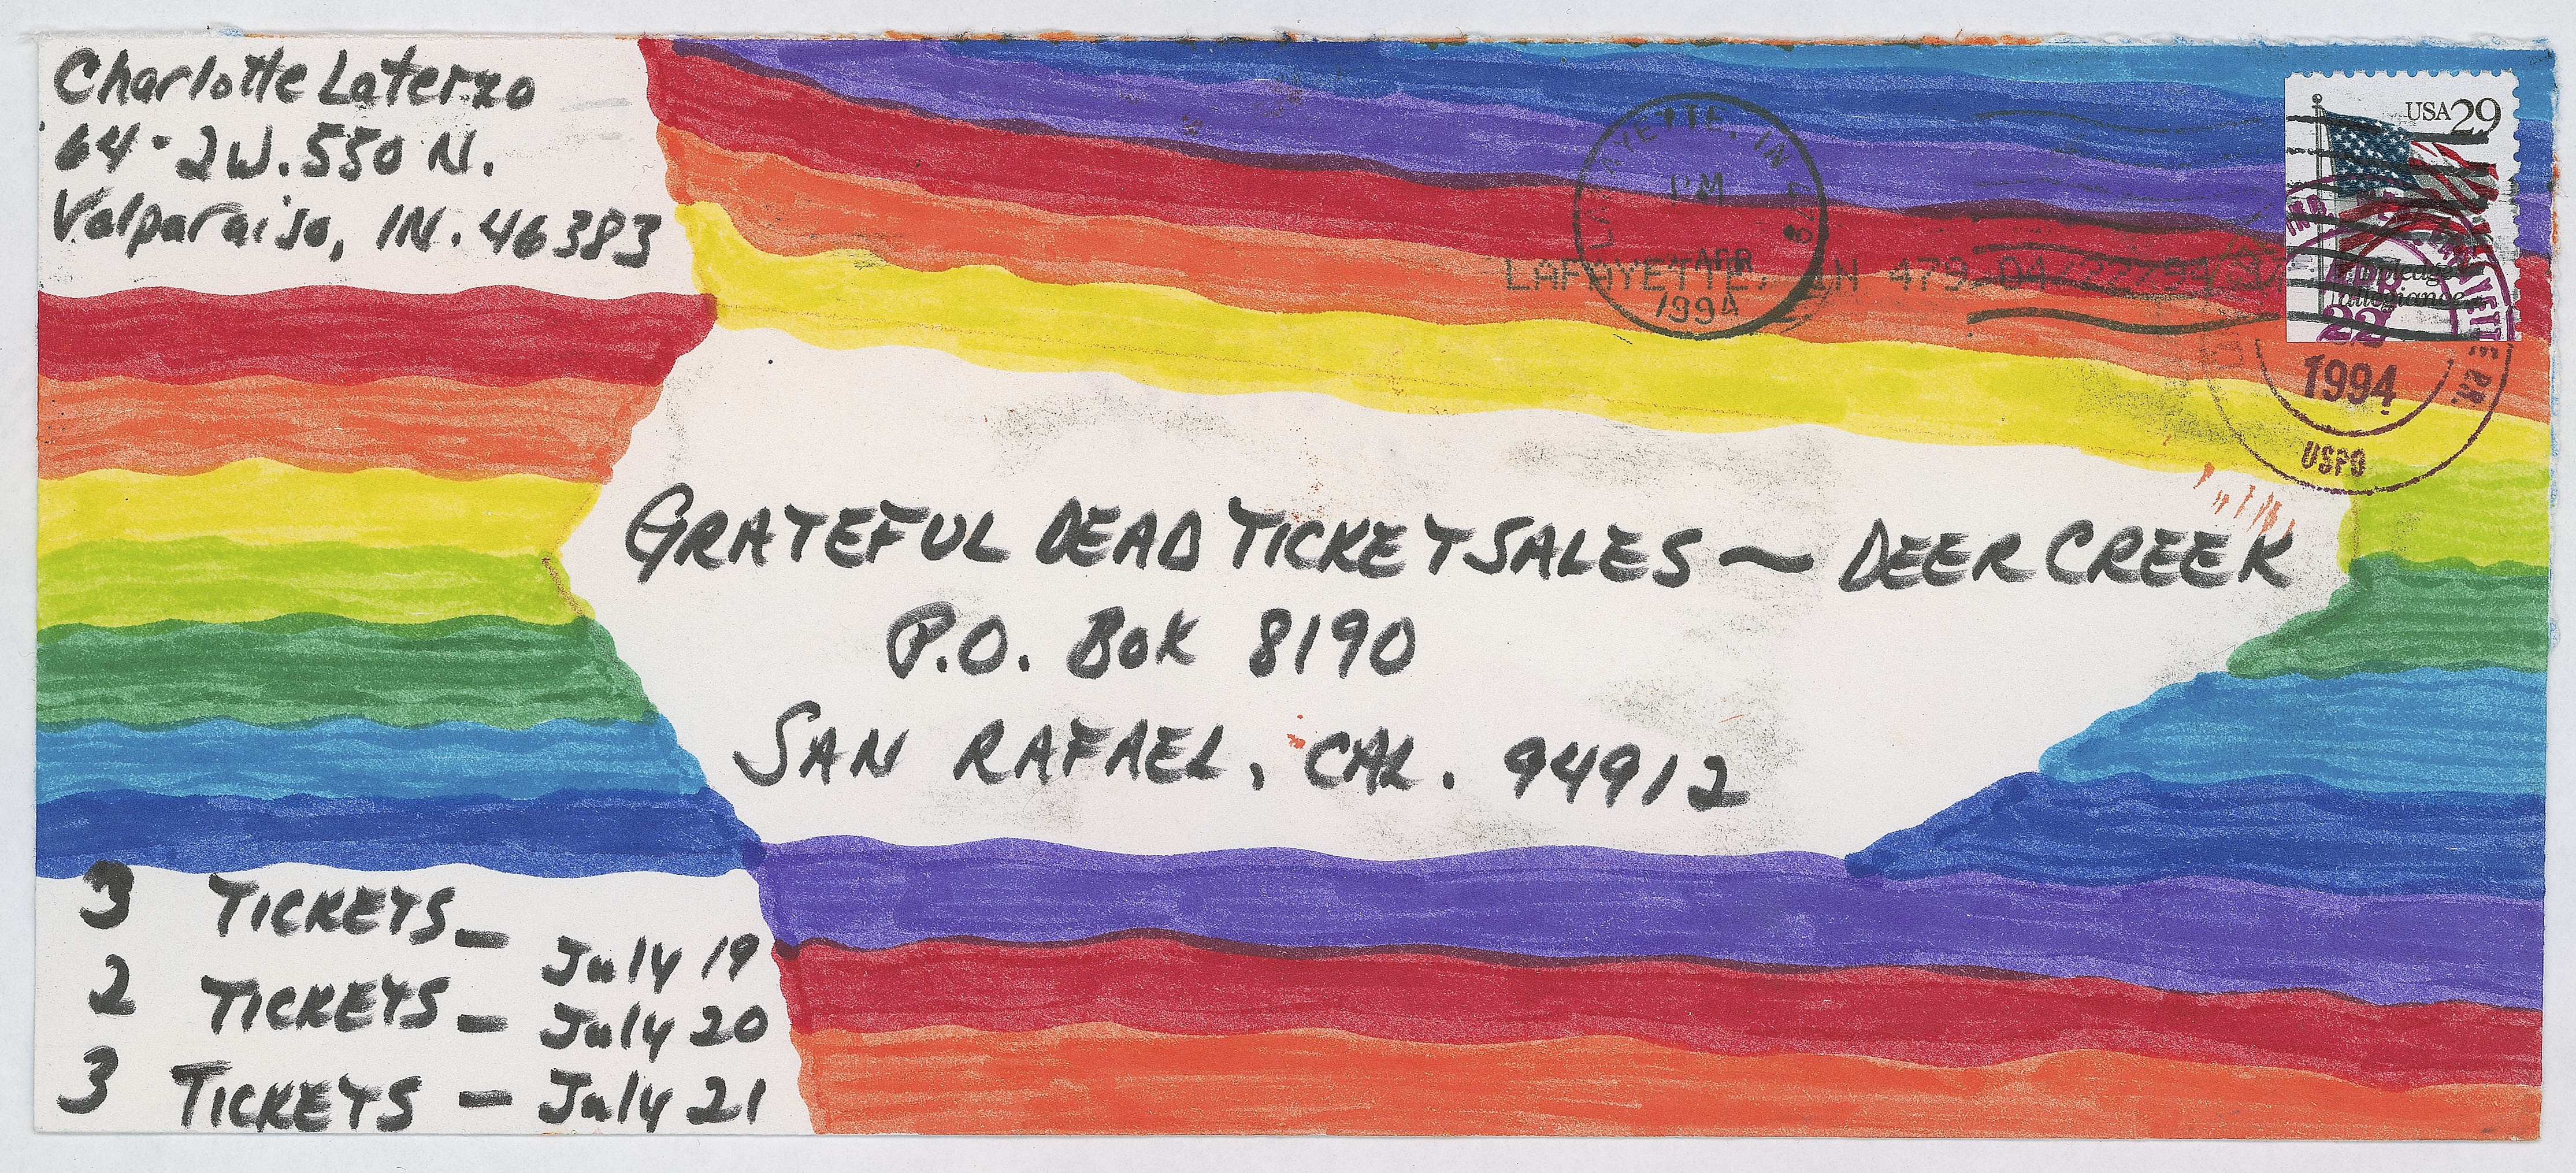 Charlotte Laterzo
64-2W. 550 N.
Valparaiso, IN. 46383
USA 29
I pledge
allegiance...
LAFAYETTE, IN 479
PM
APR
1994
LAFAYETTE, IN 479 04/22/94
22
1994
USPO
GRATEFUL DEAD TICKET SALES ~ DEER CREEK
P.O. Box 8190
SAN RAFAEL, CAL. 94912
3 TICKETS - July 19
2 TICKETS - July 20
3 TICKETS - July 21